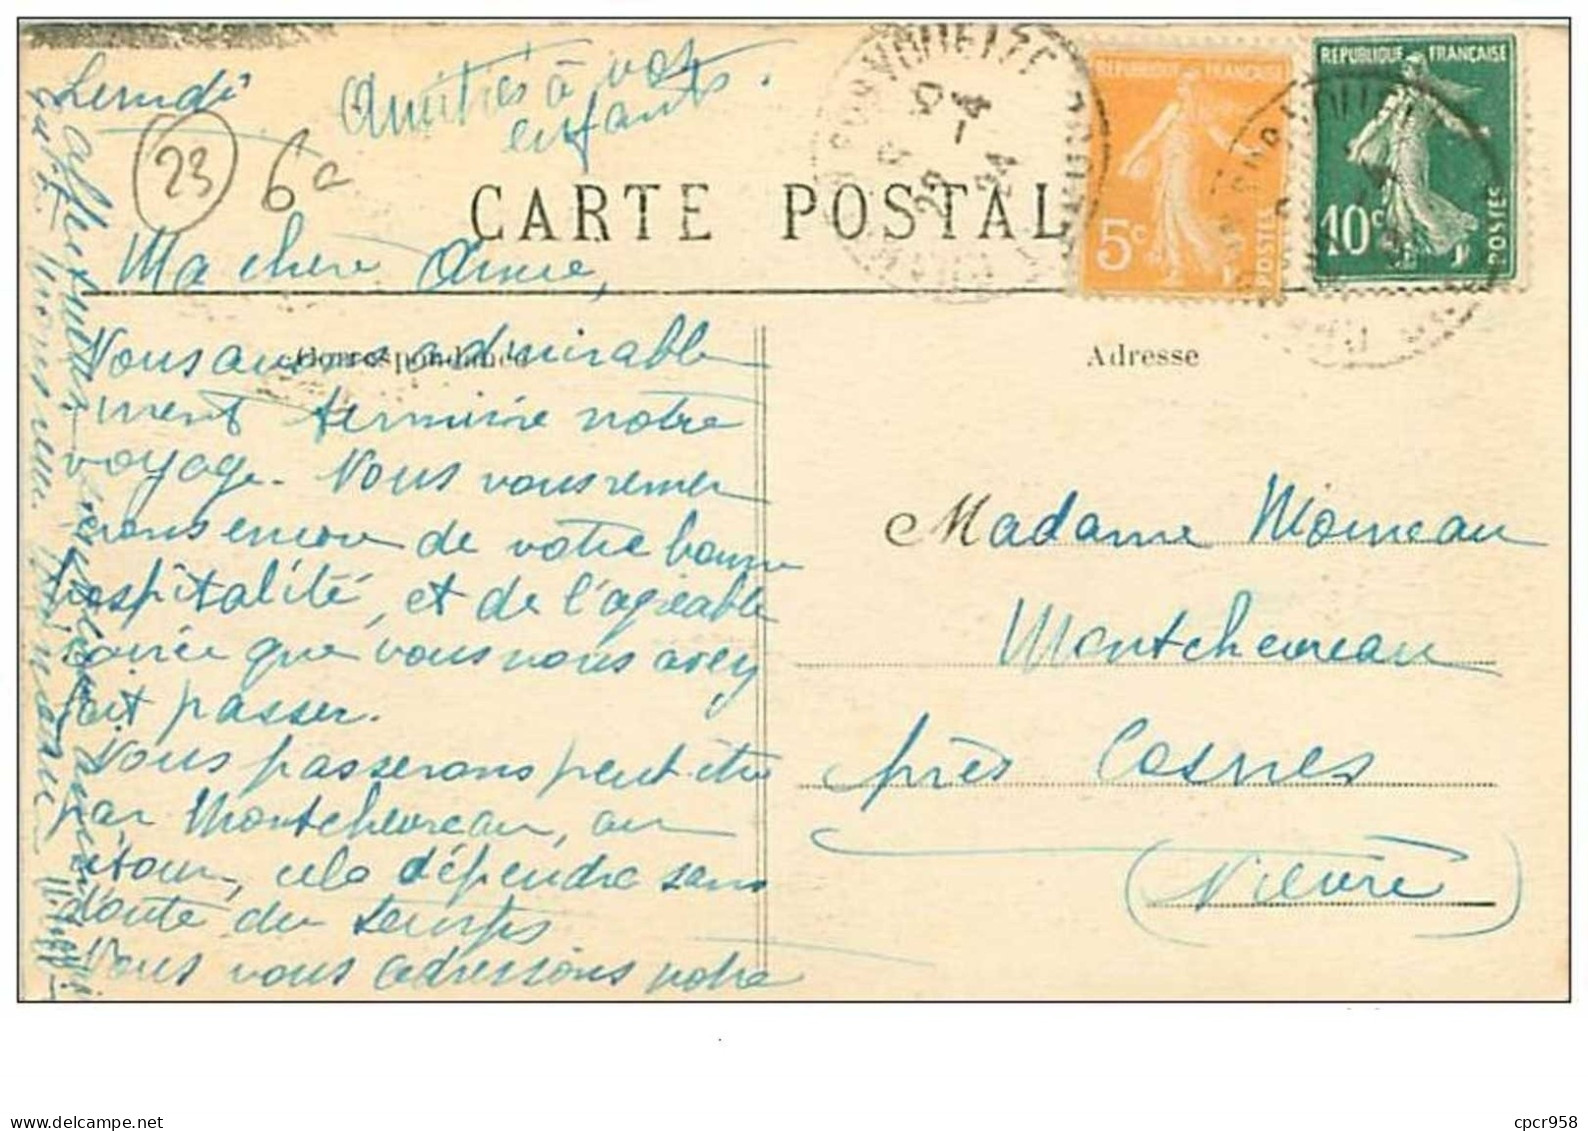 Lundi
Amitiés à vos
enfants.
23
6a
REPUBLIQUE FRANÇAISE
5c
POSTES
REPUBLIQUE FRANÇAISE
10c
POSTES
CARTE POSTAL
Ma chère Amie,
Correspondance
Adresse
Nous avons admirable
ment terminé notre
voyage. Nous vous remer
cions encore de votre bonne
hospitalité, et de l'agréable
soirée que vous nous avez
fait passer.
Nous passerons peut-être
par Montchevreau, au
retour, cela dépendra sans
doute du temps
Nous vous adressons notre
affectueux
Madame Moineau
Montchevreau
près Cosnes
(Nièvre)
cpcr958